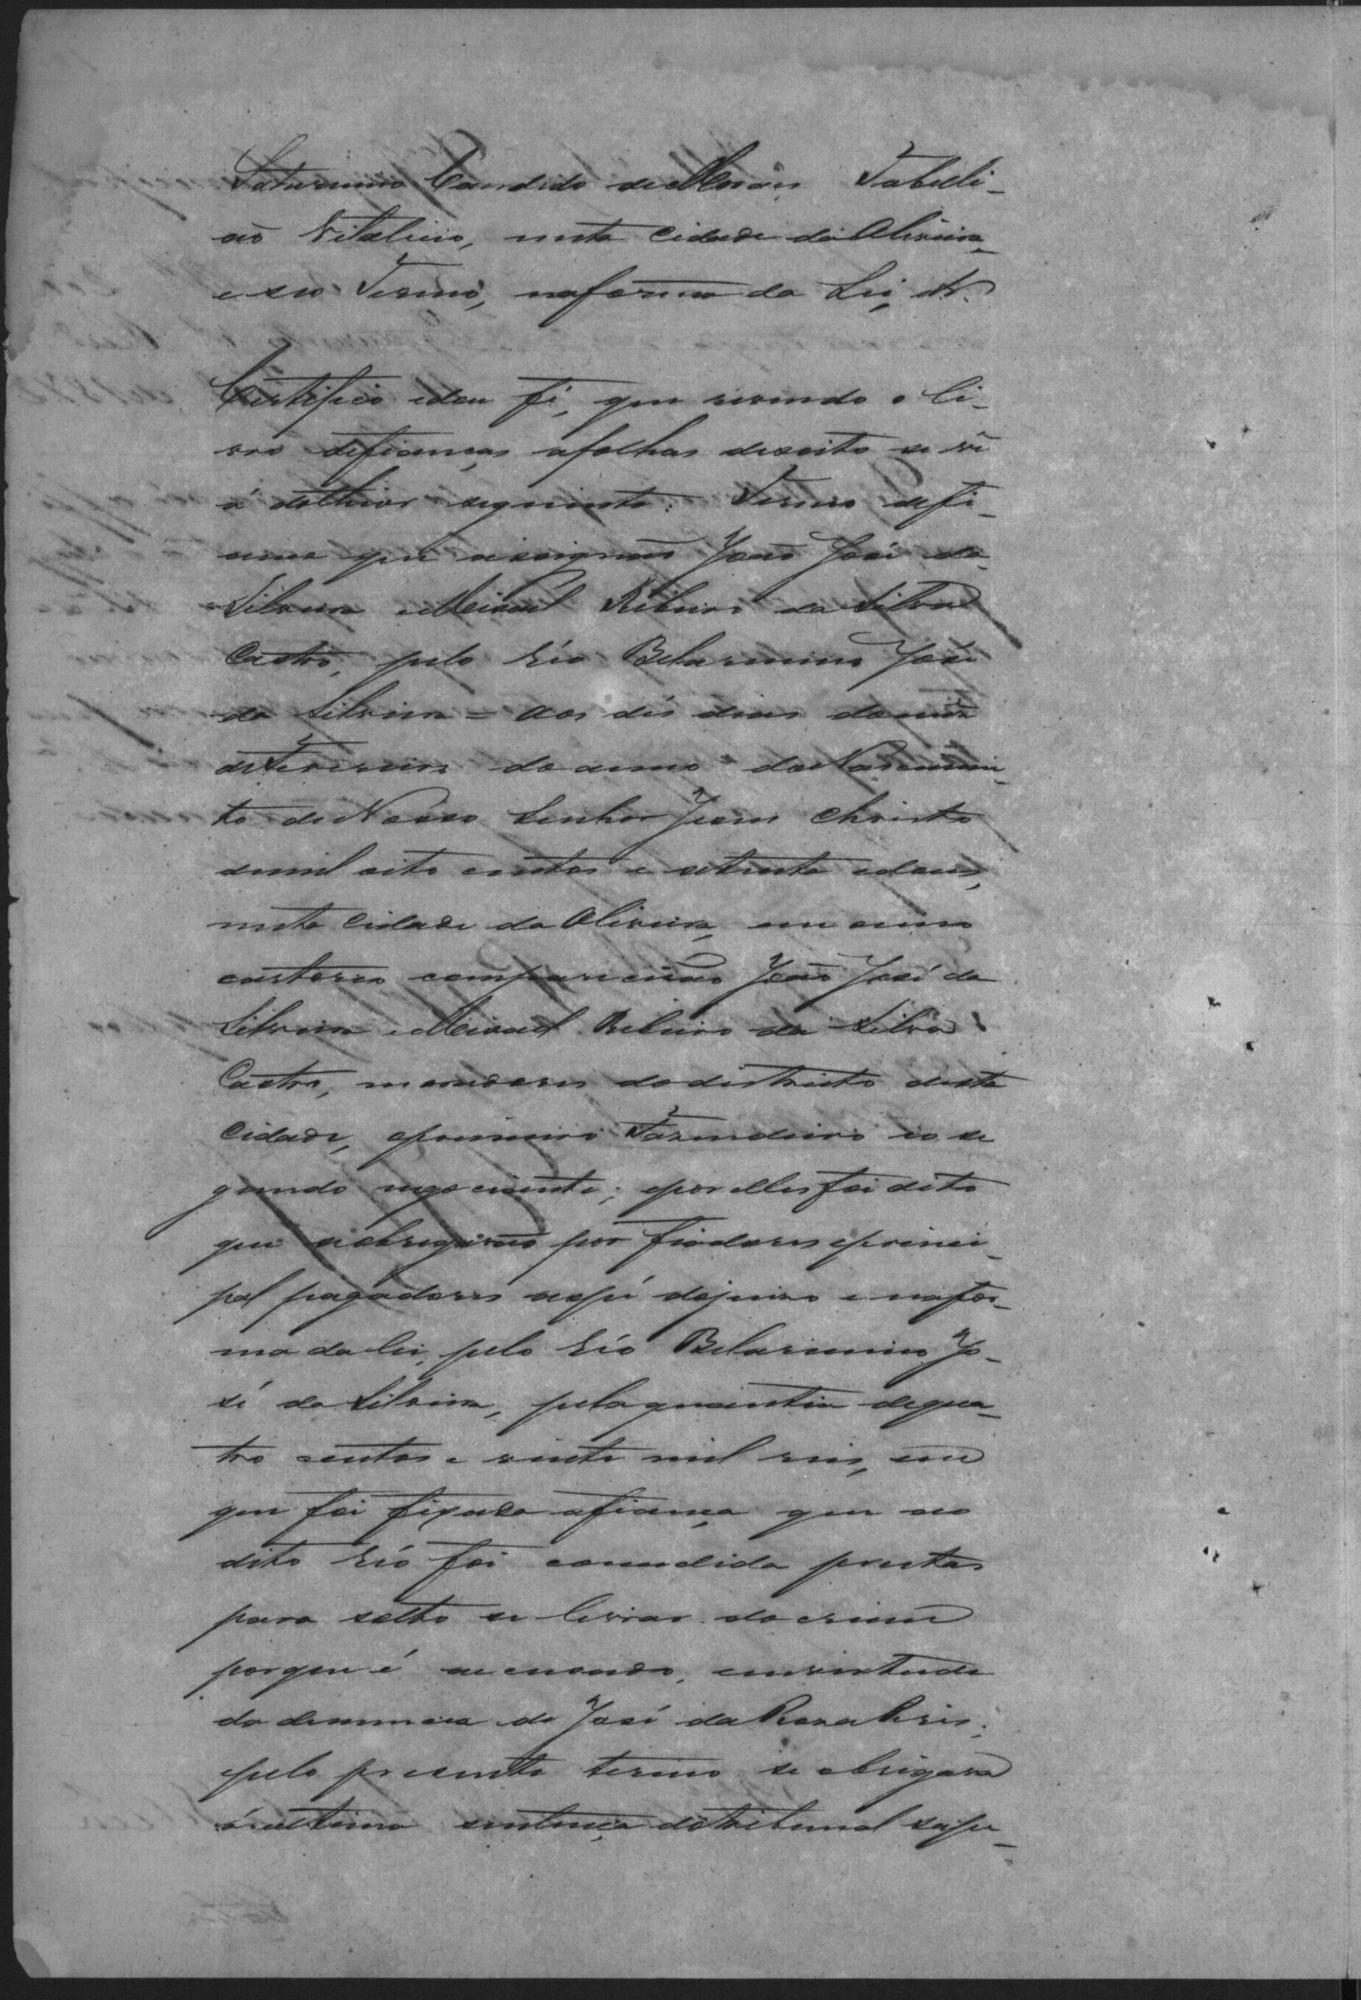 Saturnino Candido de Moraes Tabelli-
ão Vitalicio, nesta Cidade da Oliveira
e seo Termo, na forma da Lei, &.
Certifico e dou fé, que revendo o li-
vro de fianças a folhas dezoito se vê
o do theor seguinte: Termo de fi-
ança que assignão João José da
Silveira e Misael Ribeiro da Silva
Castro, pelo réo Belarmino José
da Silveira = Aos dés dias do mez
de Fevereiro do anno do Nascimen-
to de Nosso Senhor Jesus Christo
de mil oito centos e setenta e dous,
nesta Cidade da Oliveira, em meu
cartorio comparecerão João José da
Silveira e Misael Ribeiro da Silva
Castro, moradores do districto desta
Cidade, o primeiro Fazendeiro e o se
gundo negociante; e por elles foi dito
que se obrigavão por fiadores e princi-
pal pagadores a fé de juiso e na for-
ma da lei, pelo réo Belarmino Jo-
sé da Silveira, pela quantia de qua-
tro centos e vinte mil reis, em
que foi fixada a fiança que ao
dito réo foi concedida prestar
para solto se livrar do crime
porque é accusado, em virtude
da denuncia de José da Roza Reis;
e pelo presente termo se obrigava
á ultima sentença do tribunal supe-